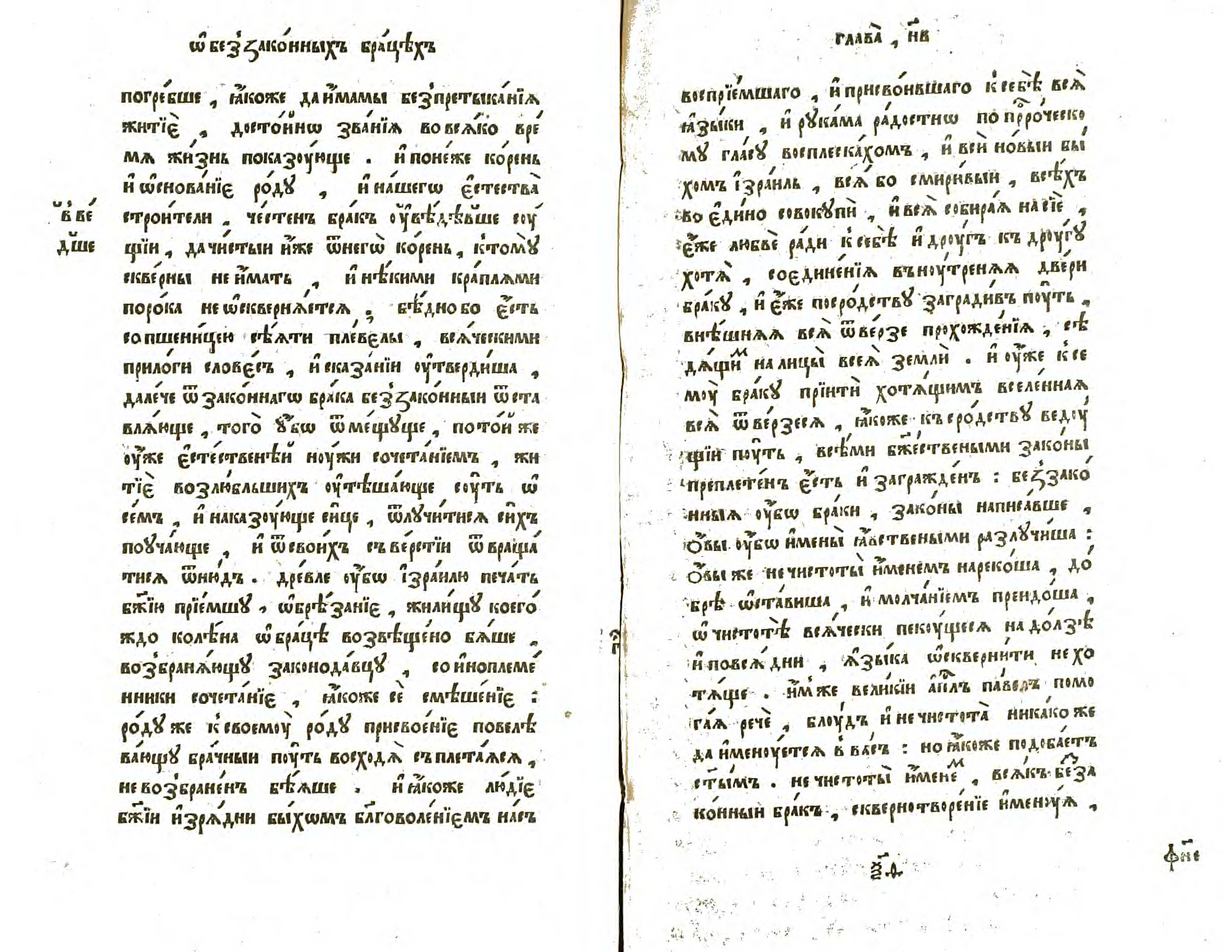 ѡ҆ беззако́нныхъ бра́цѣхъ
погре́бше , ꙗ҆́коже да и҆́мамы без̾претыка́нїѧ
житїѐ , досто́йнѡ зва́нїѧ во всѧ́ко вре́
мѧ жи́знь показꙋ́юще . и҆ поне́же ко́рень
и҆ ѡ҆снова́нїе ро́дꙋ , и҆ на́шегѡ є҆стества̀
строи́тели , че́стенъ бра́къ ᲂу҆вѣ́дѣвше сꙋ́
в̾ ве́
дѣше
щїи , да чи́стыи и҆́же ѿ него̀ ко́рень , к̾томꙋ̀
скве́рны не и҆́мать , и҆ нѣ́кими кра́плѧми
поро́ка не ѡ҆сквернѧ́етсѧ , бѣ́дно бо є҆́сть
со пшени́цею сѣ́ѧти пле́велы , всѧ́ческими
прило́ги слове́съ , и҆ сказа́нїи ᲂу҆тверди́ша ,
дале́че ѿ зако́ннагѡ бра́ка беззако́нныи ѿста
влѧ́юще , того̀ ᲂу҆́бѡ ѿме́щꙋще , по то́й же
ᲂу҆́же є҆сте́ственѣй нꙋ́жи сочета́нїемъ , жи
тїѐ возлю́бльшихъ ᲂу҆тѣша́юще сꙋ́ть ѡ҆
се́мъ , и҆ наказꙋ́юще си́це , ѿлꙋчи́тисѧ си́хъ
поꙋча́юще , и҆ ѿ свои́хъ съве́рстїи ѿвраща́
тисѧ ѿню́дъ . дре́вле ᲂу҆́бѡ і҆зра́илю печа́ть
бж҃їю прїе́мшꙋ , ѡ҆брѣ́занїе , жили́щꙋ коего́
ждо колѣ́на ѡ҆ бра́цѣ возвѣще́но бѧ́ше ,
воз̾бранѧ́ющꙋ законода́вцꙋ , со и҆ноплеме́
нники сочета́нїе , ꙗ҆́коже сѐ смѣше́нїе :
ро́дꙋ же к̾ своемꙋ̀ ро́дꙋ присвое́нїе повелѣ
ва́ющꙋ бра́чныи пꙋ́ть восходѧ̀ съплета́ѧсѧ ,
не воз̾бране́нъ бѣ́ѧше . и҆ ꙗ҆́коже лю́дїе
бж҃їи и҆зрѧ́дни бы́хѡмъ бл҃говоле́нїемъ на́съ
глава̀ , н҃в
воспрїе́мшаго , и҆ присво́ившаго к̾ себѣ̀ всѧ̀
ꙗ҆зы́ки , и҆ рꙋка́ма ра́достнѡ по прⷪ҇ро́ческо
мꙋ гла́сꙋ восплеска́хомъ , и҆ всѝ но́выи бы́
хомъ і҆зра́иль , всѧ̀ бо смири́выи , всѣ́хъ
во є҆ди́но совокꙋпѝ , и҆ всѧ̀ собира́ѧ на сїѐ ,
є҆́же любвѐ ра́ди к̾ себѣ̀ и҆ дрꙋ́гъ къ дрꙋ́гꙋ
хотѧ̀ , соєдине́нїѧ внꙋ́тренѧѧ две́ри
бра́кꙋ , и҆ є҆́же по сро́дствꙋ загради́въ пꙋ́ть ,
внѣ́шнѧѧ всѧ̀ ѿве́рзе прохожде́нїѧ , сѣ
дѧ́щиⷨ на лицы̀ всеѧ̀ землѝ . и҆ ᲂу҆́же к̾ се
мꙋ̀ бра́кꙋ прїитѝ хотѧ́щимъ вселе́ннаѧ
всѧ̀ ѿве́рзесѧ , ꙗ҆́коже къ сро́дствꙋ ведꙋ́
щїи пꙋ́ть , всѣ́ми бж҃е́ствеными зако́ны
преплете́нъ є҆́сть и҆ загражде́нъ : беззако́
нныѧ ᲂу҆́бѡ бра́ки , зако́ны написа́вше ,
ѻ҆́вы ᲂу҆́бѡ и҆мены̀ ꙗ҆́вствеными разлꙋчи́ша :
ѻ҆́вы же нечистоты̀ и҆́менемъ нареко́ша , до́
брѣ ѡ҆ста́виша , и҆ молча́нїемъ преидо́ша ,
ѡ҆ чистотѣ̀ всѧ́чески пекꙋ́щесѧ на до́лзѣ
и҆ по всѧ̀ дни , ꙗ҆зы́ка ѡ҆скверни́ти не хо
тѧ́ще . и҆́мже вели́кїи а҆пⷭ҇лъ па́велъ помо
га́ѧ речѐ , блꙋ́дъ и҆ нечистота̀ никако же
да и҆менꙋ́етсѧ в̾ ва́съ : но ꙗ҆́коже подоба́етъ
ст҃ы́мъ . нечистоты̀ и҆́менеⷨ , всѧ́къ беза
ко́нный бра́къ , сквернотворе́нїе и҆менꙋ́ѧ ,
х҃д
ф҃не